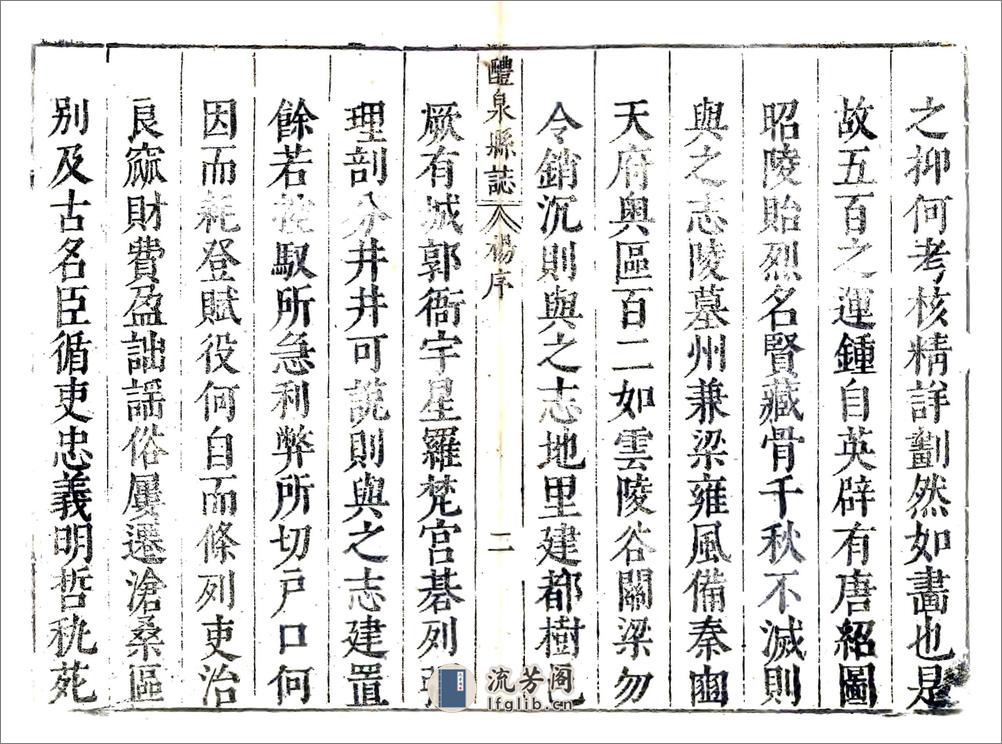 之抑何考核精詳劃然如畵也是
故五百之運鍾自英辟有唐紹圖
昭陵貽烈名賢藏骨千秋不滅則
與之志陵墓州兼梁雍風備秦豳
天府奥區百二如雲陵谷關梁勿
令銷沉則與之志地里建都樹
醴泉縣誌 楊序 二
厥有城郭衙宇星羅梵宮碁列
理剖分井井可説則與之志建置
餘若控馭所急利弊所切戸口何
因而耗登賦役何自而條列吏治
良窳財費盈詘謡俗屢遷滄桑區
别及古名臣循吏忠義明哲秇苑
流芳阁
lfglib.cn